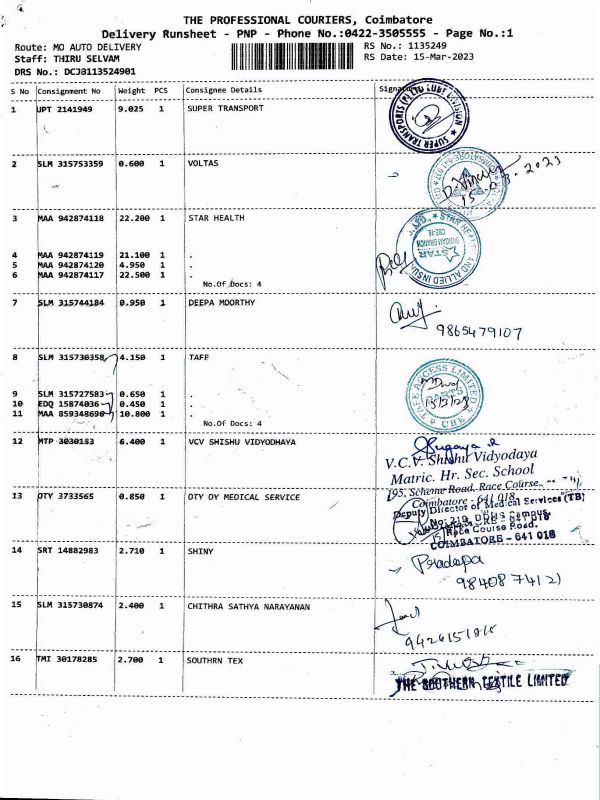 THE PROFESSIONAL COURIERS, Coimbatore
Delivery Runsheet - PNP - Phone No.:0422-3505555 - Page No.:1
Route: MO AUTO DELIVERY RS No.: 1135249
Staff: THIRU SELVAM RS Date: 15-Mar-2023
DRS No.: DCJB113524901
S No Consignment No Weight PCS Consignee Details
1 UPT 2141949 9.025 1 SUPER TRANSPORT
SUPER TRANSPORTS (P) LTD LUBE DIVISION
2 SLM 315753359 0.600 1 VOLTAS
3 MAA 942874118 22.200 1 STAR HEALTH
STAR HEALTH AND ALLIED INSU
STAR
4 MAA 942874119 21.100 1 .
5 MAA 942874120 4.950 1 .
6 MAA 942874117 22.500 1 .
No.Of.Docs: 4
7 SLM 315744184 0.950 1 DEEPA MOORTHY
9865479107
8 SLM 315730358 4.150 1 TAFE
TAFE ACCESS LIMITED
CBE
9 SLM 315727583 0.650 1 .
10 EDQ 15874036 0.450 1 .
11 MAA 859348690 10.800 1 .
No.Of Docs: 4
12 MTP 3030153 6.400 1 VCV SHISHU VIDYODHAYA
V.C.V. Shishu Vidyodaya
Matric. Hr. Sec. School
195, Scheme Road, Race Course,
Coimbatore - 641 018
13 OTY 3733565 0.850 1 OTY OY MEDICAL SERVICE
Deputy Director of Medical Services (TB)
No: 219, DDHS Campus,
Race Course Road,
COIMBATORE - 641 018
14 SRT 14882983 2.710 1 SHINY
Pradeepa
15 SLM 315730874 2.400 1 CHITHRA SATHYA NARAYANAN
16 TMI 30178285 2.700 1 SOUTHRN TEX
THE SOUTHERN TEXTILE LIMITED